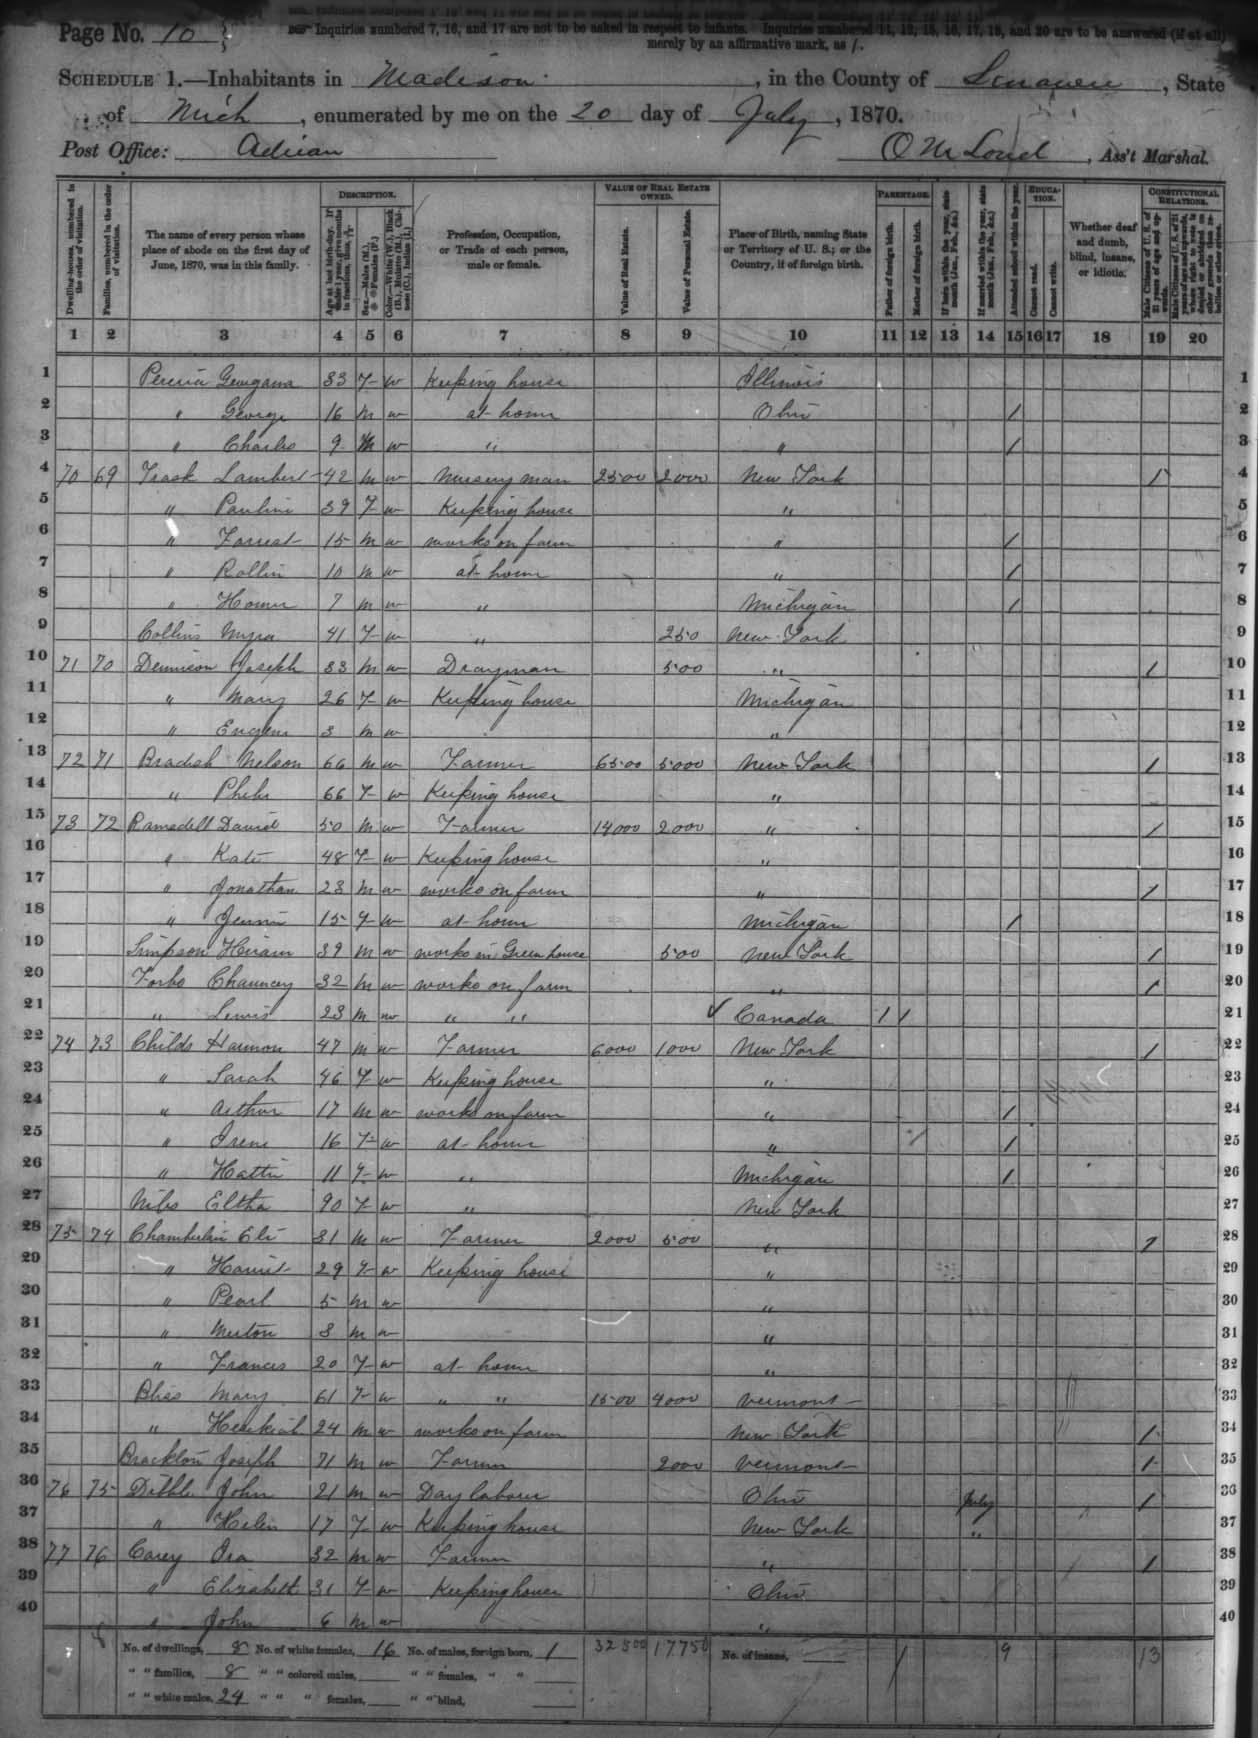 Page No. 10
Inquiries numbered 7, 16, and 17 are not to be asked in respect to infants. Inquiries numbered 11, 12, 15, 16, 17, 19, and 20 are to be answered (if at all)
merely by an affirmative mark, as /.
SCHEDULE 1.—Inhabitants in Madison, in the County of Lenawee, State
of Mich, enumerated by me on the 20 day of July, 1870.
Post Office: Adrian O M Loud, Ass't Marshal.
Dwelling-houses, numbered in the order of visitation.
Families, numbered in the order of visitation.
The name of every person whose place of abode on the first day of June, 1870, was in this family.
DESCRIPTION.
Age at last birth-day. If under 1 year, give months in fractions, thus, 3/12
Sex.—Males (M.), Females (F.)
Color.—White (W.), Black (B.), Mulatto (M.), Chinese (C.), Indian (I.)
Profession, Occupation, or Trade of each person, male or female.
VALUE OF REAL ESTATE OWNED.
Value of Real Estate.
Value of Personal Estate.
Place of Birth, naming State or Territory of U. S.; or the Country, if of foreign birth.
PARENTAGE.
Father of foreign birth.
Mother of foreign birth.
If born within the year, state month (Jan., Feb., &c.)
If married within the year, state month (Jan., Feb., &c.)
Attended school within the year.
EDUCATION.
Cannot read.
Cannot write.
Whether deaf and dumb, blind, insane, or idiotic.
CONSTITUTIONAL RELATIONS.
Male Citizens of U. S. of 21 years of age and upwards.
Male Citizens of U. S. of 21 years of age and upwards, where right to vote is denied or abridged on other grounds than rebellion or other crime.
1 2 3 4 5 6 7 8 9 10 11 12 13 14 15 16 17 18 19 20
1 Georgana 33 F w Keeping house Illinois 1
2 " George 16 m w at home Ohio / 2
3 " Charles 9 m w " " / 3
4 70 69 Trask Lambert 42 m w Nursery man 2500 2000 New York / 4
5 " Pauline 39 F w Keeping house " 5
6 " Forrest 15 m w works on farm " / 6
7 " Rollin 10 m w at home " / 7
8 " Homer 7 m w " Michigan / 8
9 Collins Myra 41 F w " 250 New York 9
10 71 70 Dennison Joseph 33 m w Drayman 500 " / 10
11 " Mary 26 F w Keeping house Michigan 11
12 " Eugene 3 m w " 12
13 72 71 Bradish Nelson 66 m w Farmer 6500 5000 New York / 13
14 " Phebe 66 F w Keeping house " 14
15 73 72 Ramsdell David 50 m w Farmer 14000 2000 " / 15
16 " Kate 48 F w Keeping house " 16
17 " Jonathan 23 m w works on farm " / 17
18 " Jennie 15 F w at home Michigan / 18
19 Simpson Hiram 39 m w works in Green house 500 New York / 19
20 Forbs Chauncey 32 m w works on farm " / 20
21 " Lewis 23 m w " " Canada / / 21
22 74 73 Childs Harmon 47 m w Farmer 6000 1000 New York / 22
23 " Sarah 46 F w Keeping house " 23
24 " Arthur 17 m w works on farm " / 24
25 " Irene 16 F w at home " / 25
26 " Hattie 11 F w " Michigan / 26
27 Niles Eltha 90 F w " New York 27
28 75 74 Chamberlin Eli 31 m w Farmer 2000 500 " / 28
29 " Harriet 29 F w Keeping house " 29
30 " Pearl 5 m w " 30
31 " Merton 3 m w " 31
32 " Frances 20 F w at home " 32
33 Bliss Mary 61 F w " " 1500 4000 Vermont 33
34 " Hezekiah 24 m w works on farm New York / 34
35 Joseph 71 m w Farmer 2000 Vermont / 35
36 76 75 Dibble John 21 m w Day laborer Ohio July / 36
37 " Helen 17 F w Keeping house New York " 37
38 77 76 Carey Ira 32 m w Farmer " / 38
39 " Elizabeth 31 F w Keeping house Ohio 39
40 " John 6 m w " 40
No. of dwellings, 8 No. of white females, 16 No. of males, foreign born, 1 32500 17750 No. of insane, / 9 13
" " families, 8 " " colored males, " " females, " "
" " white males, 24 " " " females, " " blind,